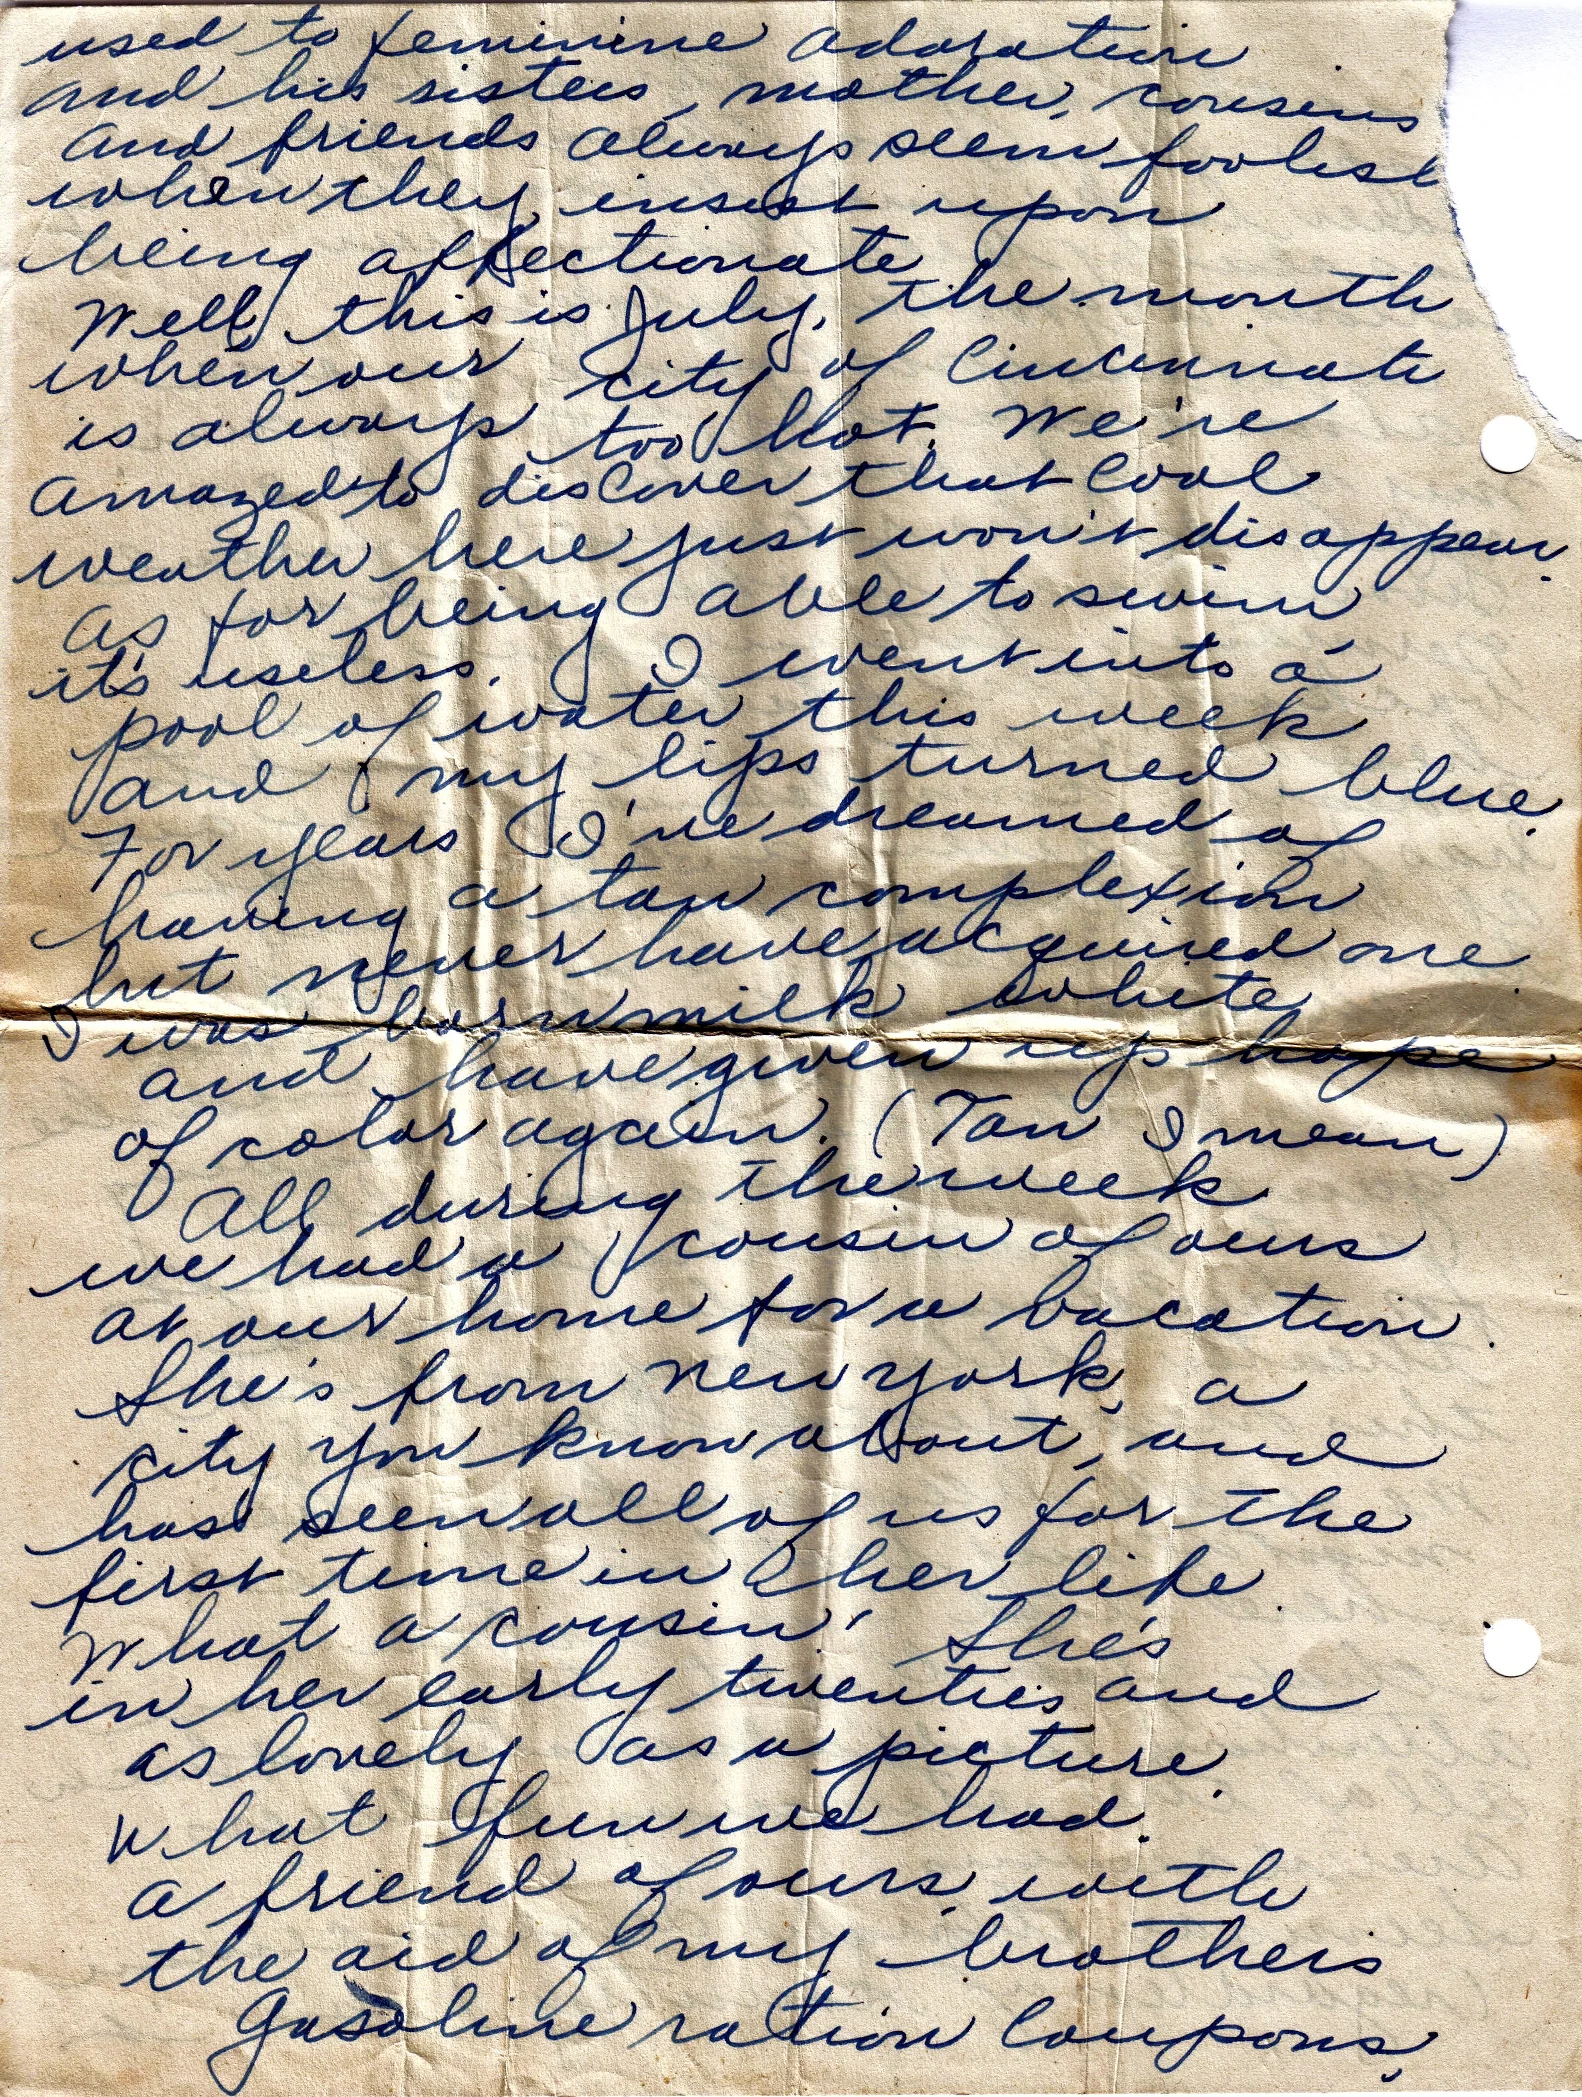 used to feminine adoration
and his sisters, mother, cousins
and friends always seem foolish
when they insist upon
being affectionate.
Well, this is July, the month
when our city of Cincinnati
is always too hot. We're
amazed to discover that cool
weather here just won't disappear.
As for being able to swim
it's useless. I went into a
pool of water this week
and my lips turned blue.
For years I've dreamed of
having a tan complexion
but never have acquired one.
I was born milk white
and have given up hope
of color again. (Tan I mean)
All during the week
we had a cousin of ours
at our home for a vacation.
She's from New York, a
city you know about, and
has seen all of us for the
first time in her life.
What a cousin! She's
in her early twenties and
as lovely as a picture.
What fun we had.
A friend of ours, with
the aid of my brothers
gasoline ration coupons,